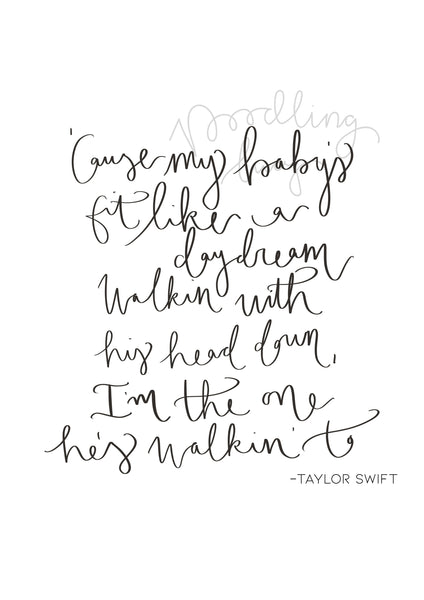 Poodling
'Cause my baby's
fit like a
daydream
Walkin with
his head down,
I'm the one
he's walkin' to
-TAYLOR SWIFT